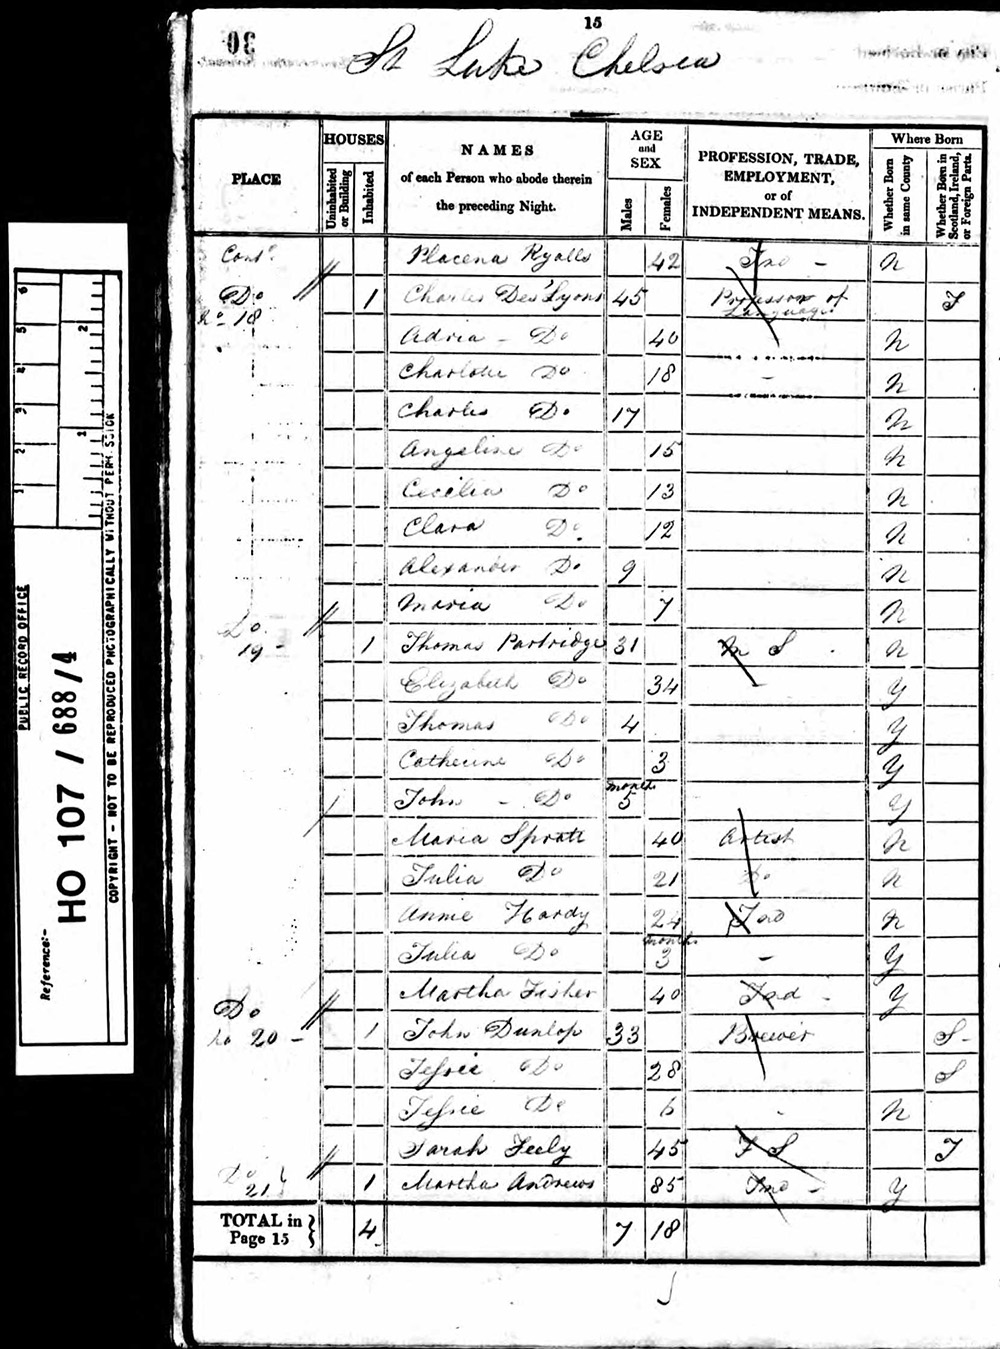 15
30
St Luke Chelsea
PLACE
HOUSES
Uninhabited or Building
Inhabited
NAMES
of each Person who abode therein
the preceding Night.
AGE
and
SEX
Males
Females
PROFESSION, TRADE,
EMPLOYMENT,
or of
INDEPENDENT MEANS.
Where Born
Whether Born in same County
Whether Born in Scotland, Ireland, or Foreign Parts.
Cont. Placena Ryalls 42 Ind - N
Do No 18 1 Charles Des Lyons 45 Professor of Language F
Adria - Do 40 N
Charlotte Do 18 - N
Charles Do 17 N
Angeline Do 15 N
Cecilia Do 13 N
Clara Do 12 N
Alexander Do 9 N
Maria Do 7 N
Do 19 - 1 Thomas Partridge 31 M S N
Elizabeth Do 34 - Y
Thomas Do 4 Y
Catherine Do 3 Y
John - Do months 5 Y
Maria Spratt 40 Artist N
Julia Do 21 Do N
Annie Hardy 24 Ind N
Julia Do months 3 - Y
Martha Fisher 40 Ind - Y
Do No 20 - 1 John Dunlop 33 Brewer S -
Jessie Do 28 S
Jessie Do 6 N
Sarah Feely 45 F S I
Do 21 1 Martha Andrews 85 Ind - Y
TOTAL in Page 15 4 7 18
PUBLIC RECORD OFFICE
Reference:-
HO 107 / 688/4
COPYRIGHT - NOT TO BE REPRODUCED PHOTOGRAPHICALLY WITHOUT PERMISSION
1
2
3
4
5
6
1
2